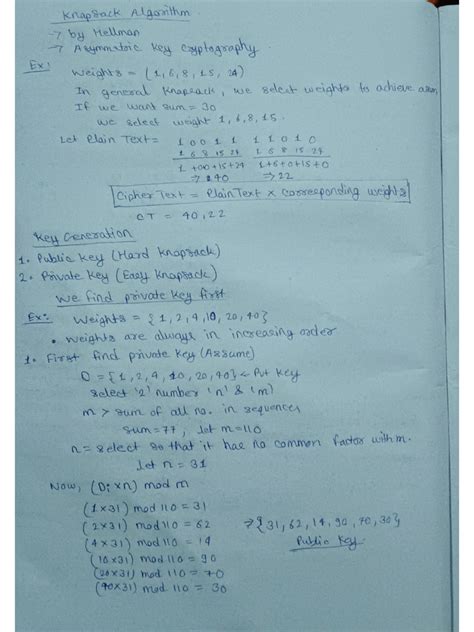 Knapsack Algorithm
→ by Hellman
→ Asymmetric Key cryptography
Ex:
Weights = (1,6,8,15,24)
In general Knapsack, we select weights to achieve a sum
If we want sum = 30
we select weight 1,6,8,15.
Let Plain Text = 1 0 0 1 1   1 1 0 1 0
1 6 8 15 24   1 6 8 15 24
1+00+15+24   1+6+0+15+0
→ 240   => 22
Cipher Text = Plain Text x corresponding weights
CT = 40,22
Key Generation
1. Public Key (Hard Knapsack)
2. Private Key (Easy Knapsack)
We find private key first
Ex: Weights = {1,2,4,10,20,40}
• weights are always in increasing order
1. First find private key (Assume)
D = {1,2,4,10,20,40} ← Pvt Key
select '2' number 'n' & 'm'
m > sum of all no. in sequences
sum = 77, let m = 110
n = select so that it has no common factor with m.
let n = 31
Now, (Di xn) mod m
(1x31) mod 110 = 31
(2x31) mod 110 = 62
(4x31) mod 110 = 14
(10x31) mod 110 = 90
(20x31) mod 110 = 70
(40x31) mod 110 = 30
=> {31,62,14,90,70,30}
Public Key